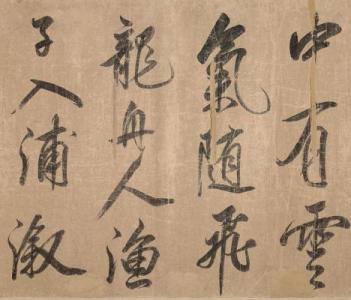 中有雲
氣随飛
龍舟人漁
子入浦漵